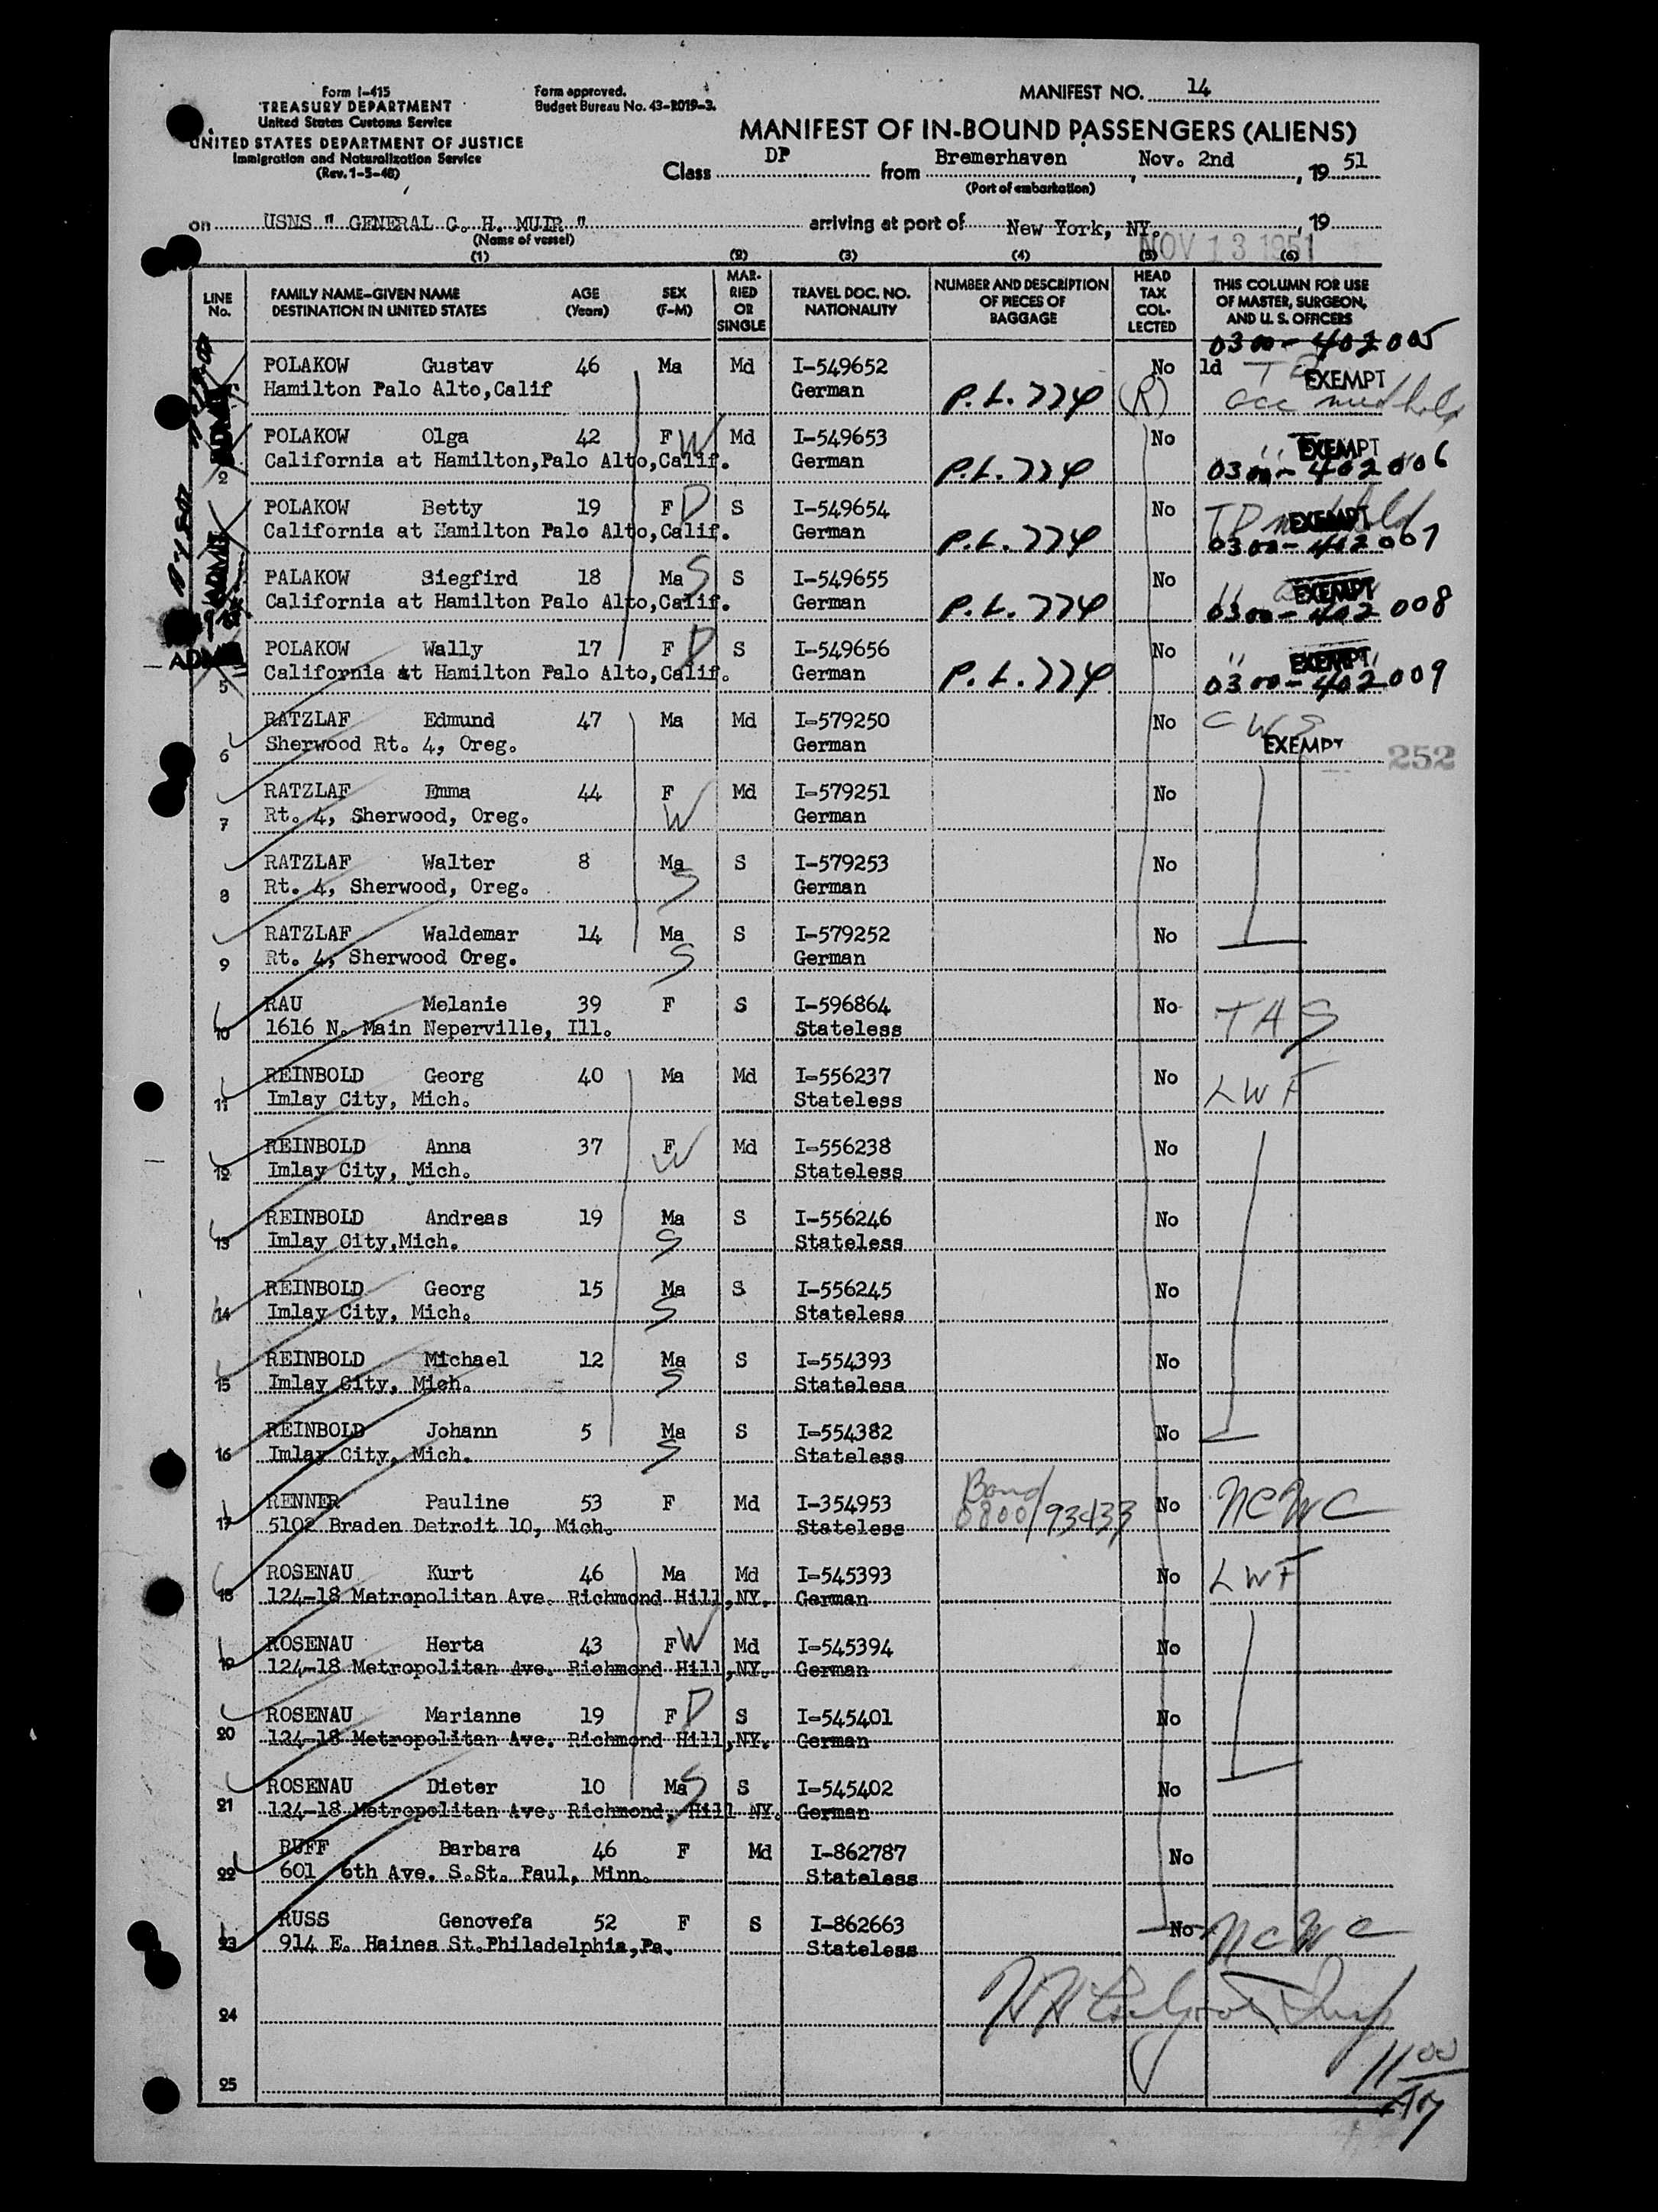 Form I-415
TREASURY DEPARTMENT
United States Customs Service
UNITED STATES DEPARTMENT OF JUSTICE
Immigration and Naturalization Service
(Rev. 1-5-48)
Form approved.
Budget Bureau No. 43-R019-3.
MANIFEST NO. 14
MANIFEST OF IN-BOUND PASSENGERS (ALIENS)
Class DP from Bremerhaven, Nov. 2nd, 19 51
(Port of embarkation)
on USNS " GENERAL C. H. MUIR " arriving at port of New York, NY., 19
(Name of vessel)
NOV 13 1951
(1) (2) (3) (4) (5) (6)
LINE No. FAMILY NAME-GIVEN NAME DESTINATION IN UNITED STATES AGE (Years) SEX (F-M) MARRIED OR SINGLE TRAVEL DOC. NO. NATIONALITY NUMBER AND DESCRIPTION OF PIECES OF BAGGAGE HEAD TAX COLLECTED THIS COLUMN FOR USE OF MASTER, SURGEON, AND U. S. OFFICERS
0300-402005
POLAKOW Gustav 46 Ma Md I-549652 No ld
Hamilton Palo Alto,Calif German P.L. 774 (R) EXEMPT
POLAKOW Olga 42 F W Md I-549653 No EXEMPT
2 California at Hamilton,Palo Alto,Calif. German P.L. 774 0300-402006
POLAKOW Betty 19 F D S I-549654 No EXEMPT
California at Hamilton Palo Alto,Calif. German P.L. 774 0300-402007
PALAKOW Siegfird 18 Ma S S I-549655 No EXEMPT
California at Hamilton Palo Alto,Calif. German P.L. 774 0300-402008
POLAKOW Wally 17 F D S I-549656 No EXEMPT
5 California at Hamilton Palo Alto,Calif. German P.L. 774 0300-402009
RATZLAF Edmund 47 Ma Md I-579250 No CWS
6 Sherwood Rt. 4, Oreg. German EXEMPT 252
RATZLAF Emma 44 F Md I-579251 No
7 Rt. 4, Sherwood, Oreg. W German
RATZLAF Walter 8 Ma S I-579253 No
8 Rt. 4, Sherwood, Oreg. S German
RATZLAF Waldemar 14 Ma S I-579252 No
9 Rt. 4, Sherwood Oreg. S German
RAU Melanie 39 F S I-596864 No TAS
10 1616 N. Main Neperville, Ill. Stateless
REINBOLD Georg 40 Ma Md I-556237 No LWF
11 Imlay City, Mich. Stateless
REINBOLD Anna 37 F Md I-556238 No
12 Imlay City, Mich. W Stateless
REINBOLD Andreas 19 Ma S I-556246 No
13 Imlay City,Mich. S Stateless
REINBOLD Georg 15 Ma S I-556245 No
14 Imlay City, Mich. S Stateless
REINBOLD Michael 12 Ma S I-554393 No
15 Imlay City, Mich. S Stateless
REINBOLD Johann 5 Ma S I-554382 No
16 Imlay City, Mich. S Stateless
RENNER Pauline 53 F Md I-354953 Bond No NCWC
17 5102 Braden Detroit 10, Mich. Stateless 0800/93433
ROSENAU Kurt 46 Ma Md I-545393 No LWF
18 124-18 Metropolitan Ave. Richmond Hill,NY. German
ROSENAU Herta 43 F W Md I-545394 No
19 124-18 Metropolitan Ave. Richmond Hill,NY. German
ROSENAU Marianne 19 F D S I-545401 No
20 124-18 Metropolitan Ave. Richmond Hill,NY. German
ROSENAU Dieter 10 Ma S S I-545402 No
21 124-18 Metropolitan Ave. Richmond, Hill NY. German
RUFF Barbara 46 F Md I-862787 No
22 601 6th Ave. S.St. Paul, Minn. Stateless
RUSS Genovefa 52 F S I-862663 No NCWC
23 914 E. Haines St.Philadelphia,Pa. Stateless
24
25
11 00